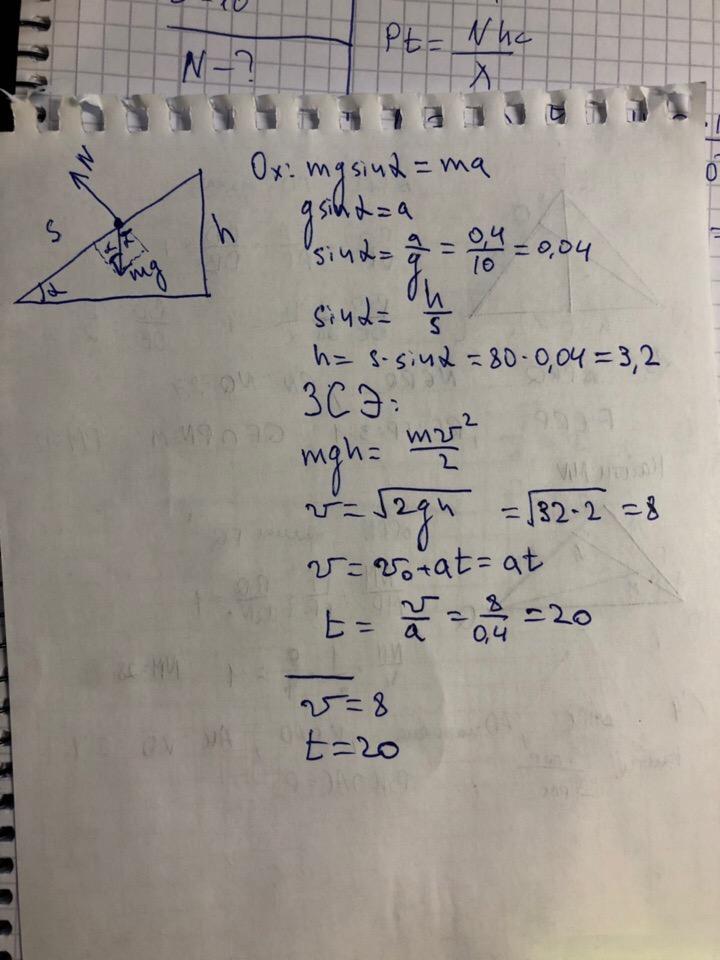 N-?
Pt = Nhc/λ
N
s
h
α
α
mg
α
Ox: mg sinα = ma
g sinα = a
sinα = a/g = 0,4/10 = 0,04
sinα = h/s
h = s·sinα = 80·0,04 = 3,2
ЗСЭ:
mgh = mv²/2
v = √2gh = √32·2 = 8
v = v₀+at = at
t = v/a = 8/0,4 = 20
v = 8
t = 20